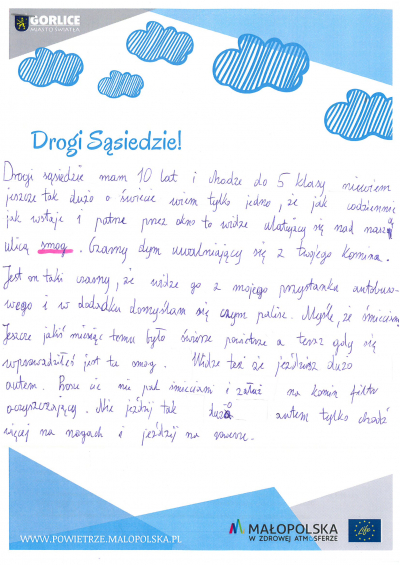 GORLICE
MIASTO ŚWIATŁA
Drogi Sąsiedzie!
Drogi sąsiedzie mam 10 lat i chodze do 5 klasy niewiem
jeszcze tak dużo o świecie wiem tylko jedno, że jak codziennie
jak wstaje i patrze przez okno to widze ulatujący się nad naszą
ulicą smog. Czarny dym uwalniający się z twojego komina.
Jest on taki czarny, że widze go z mojego przystanku autobuso-
wego i w dodadku domyślam się czym palisz. Myśle, że śmieciami.
Jeszcze jakiś miesiąc temu było świerze powietrze a teraz gdy się
wprowadziłeś jest tu smog. Widze też że jeździsz dużo
autem. Prosze cie nie pal śmieciami i załuż na komin filtr
oczyszczający. Nie jeździj tak dużo autem tylko chodź
więcej na nogach i jeździj na rowerze.
WWW.POWIETRZE.MALOPOLSKA.PL
MAŁOPOLSKA
W ZDROWEJ ATMOSFERZE
Life